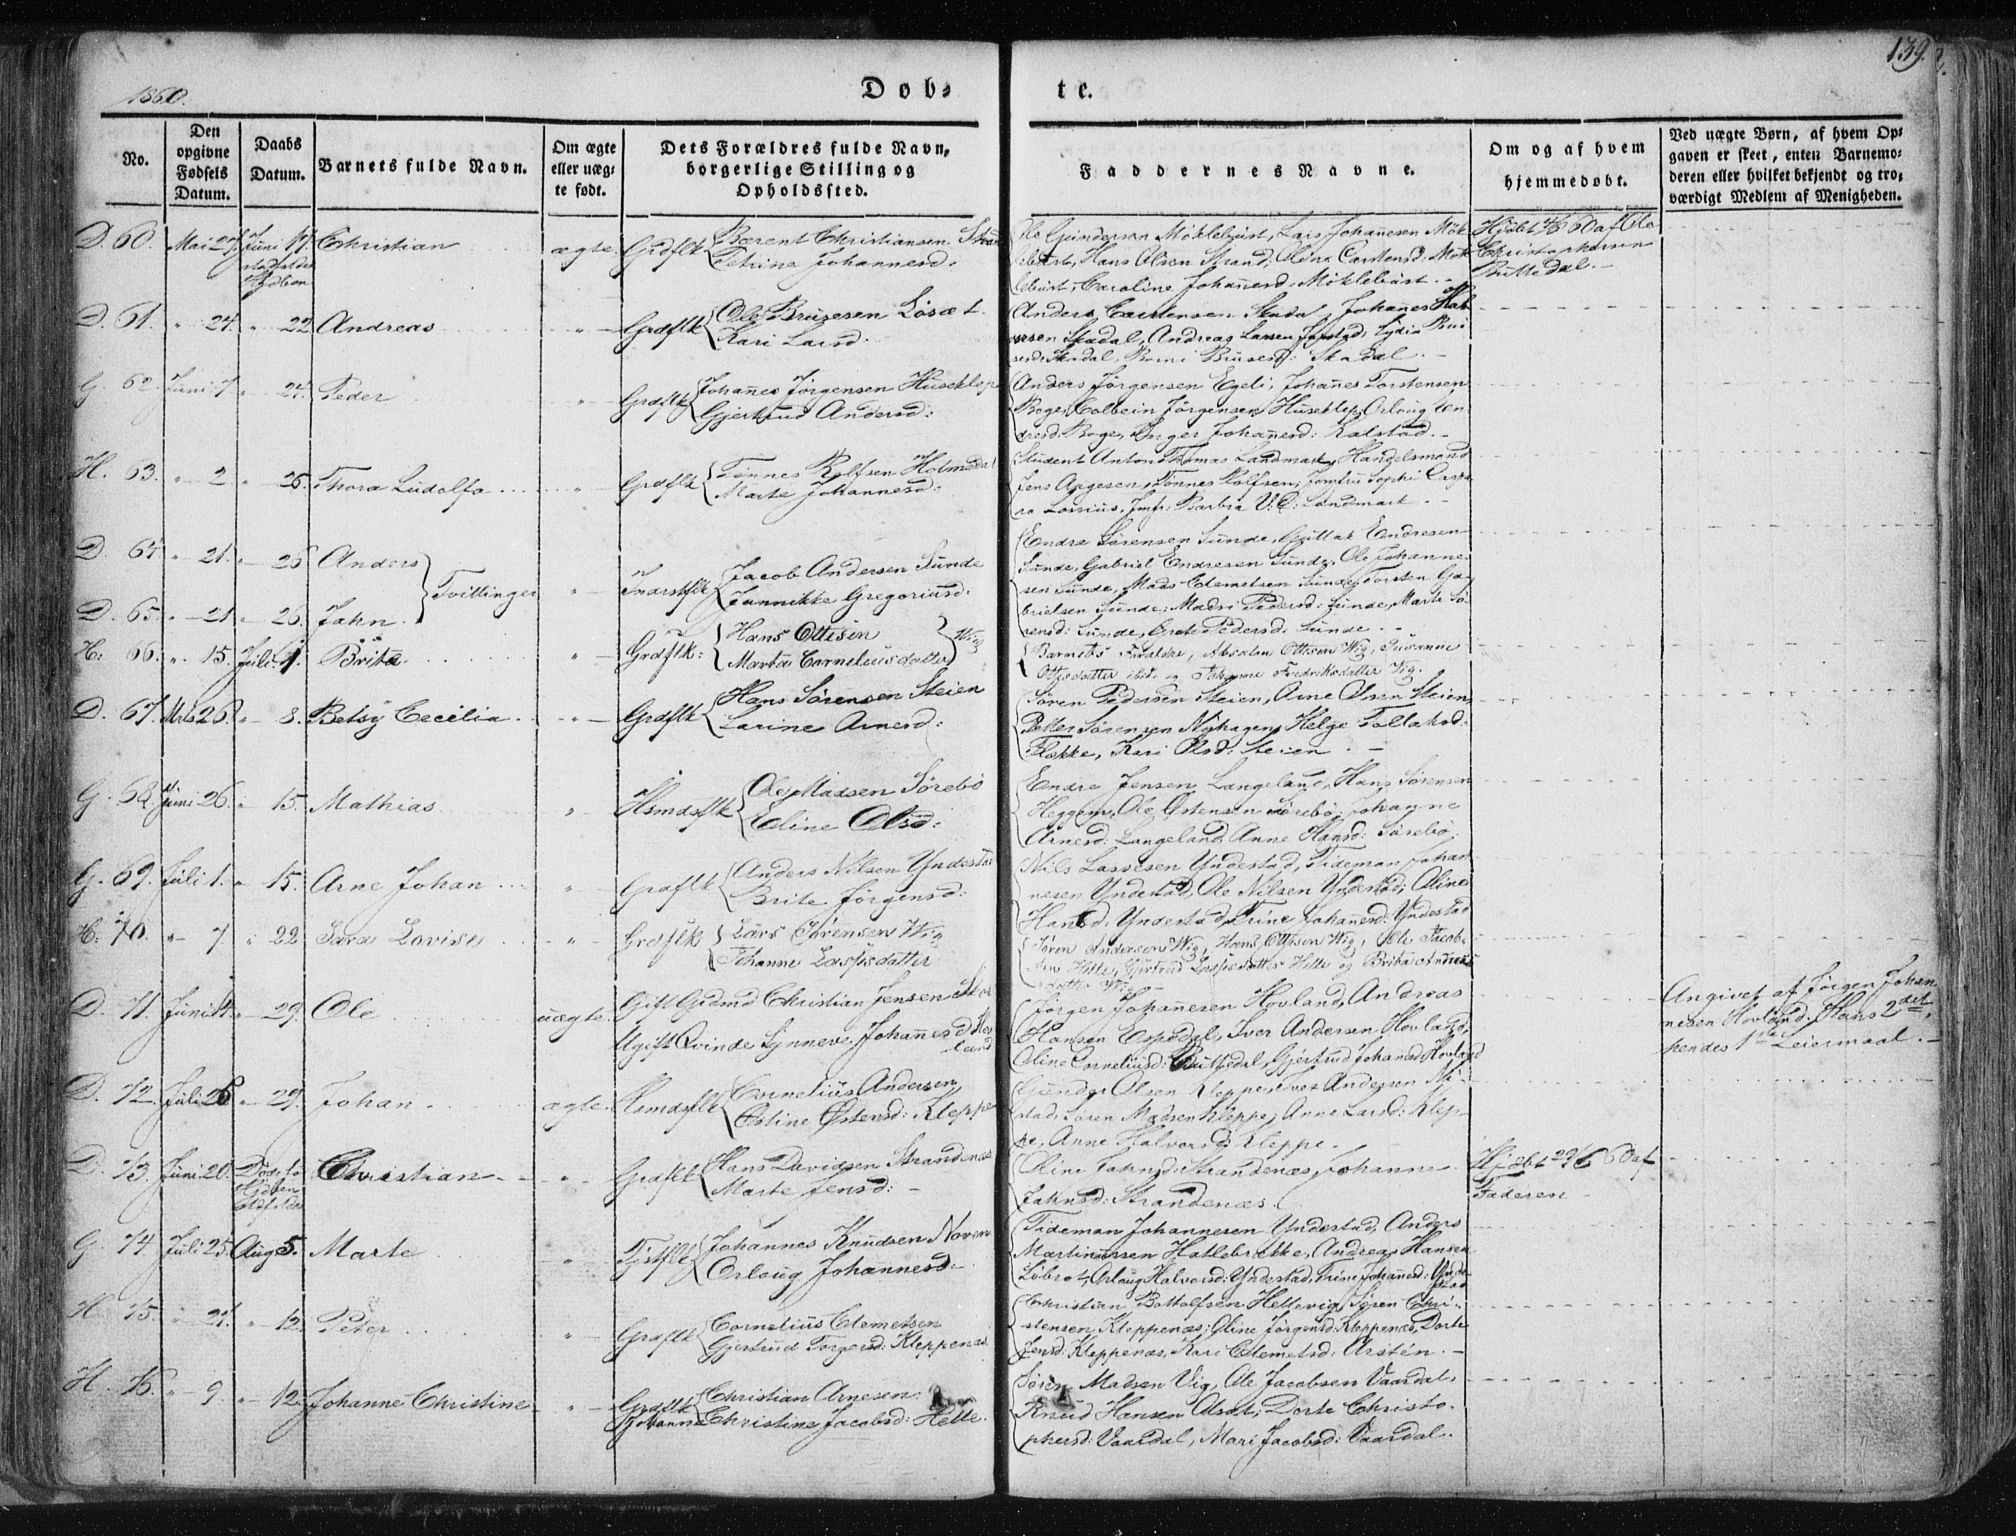 1860.
Døb-
te.
139.
No.
Den opgivne Fødsels Datum.
Daabs Datum.
Barnets fulde Navn.
Om ægte eller uæg-te født.
Dets Forældres fulde Navn, borgerlige Stilling og Opholdssted.
Faddernes Navne.
Om og af hvem hjemmedøbt.
Ved uægte Børn, af hvem Op-gaven er skeet, enten Barnemo-deren eller hvilket bekjendt og tro-værdigt Medlem af Menigheden.
D. 60. Mai 27. Juni 17. Christian ægte. Grdflk Bærent Christiansen
Petrine Johannesd:
Ole Gundersen Møklebust, Lars Johannesen Møk
lebust, Hans Olsen Strand, Oline Carstensd: Møk
lebust, Caroline Johannesd. Møklebust.
Hjdbt 4/6 60 af Ole
Christophersen
Buttedal.
D. 61. " 24. " 22. Andreas " Grdflk Ole Brusesen Løsæt.
Kari Larsd.
Anders Carstensen Skadal, Johannes
Skadal, Andreas Larsen
Skadal, Brusesd: Skadal.
G. 62. Juni 7. " 24. Peder " Grdflk Johannes Jørgensen Huseklep
Gjertrud Andersd:
Anders Jørgensen Egeli, Johannes Torstensen
Boge, Colbein Jørgensen Huseklep, Orloug
Boge, Inger Johannesd: Kalstad.
H. 63. " 2 " 25. Thora Ludolfa " Grdflk Tønnes Rolfsen Holmedal
Marte Johannesd:
Student Anton Thomas Landmark, Handelsmand
Jens Aagesen, Tønnes Rolfsen, Jomfru Sophi
Lossius, Jmfr: Barbra V. D: Landmark.
D. 64. " 21. " 26 Anders
Tvillinger " Jacob Andersen Sunde
Jannikke Gregoriusd:
D. 65. " 21. " 26. Jahn.
Endre Sørensen Sunde, Guttar Endresen
Sunde, Gabriel Endresen Sunde, Ole Johanne
sen Sunde, Mads Clemetsen Sunde, Torsten Ga
brielsen Sunde, Madri Pedersd: Sunde, Marte Sø
rensd: Sunde, Pedersd. Sunde.
H: 66. " 15. Juli 1. Brita " Grdflk: Hans Ottesen
Marta Corneliusdatter Wiig
Barnets Forældre, Absalon Ottesen Wig, Susanne
Ottesdatter ibid. og Johanne Fredriksdatter Vig.
D. 67. 26. " 8. Betsy Cecilia " Grdflk Hans Sørensen Steien
Larine Arnesd:
Søren Pedersen Steien, Arne Olsen Steien,
Peller Sørensen Nyhagen, Helge Tollaksd:
Flekke, Kari Olsd: Steien.
G. 68. Juni 26. " 15. Mathias " Hsmdsflk Ole Madsen Sørebø
Eline Olsd:
Endre Jensen Langeland, Hans Sørensen
Heggem, Ole Østensen Sørebø, Johanne
Arnesd: Langeland, Anne Hansd: Sørebø.
G. 69. Juli 1. " 15. Arne Johan " Grdflk Anders Nilsen Yndestad
Brite Jørgensd:
Nils Lassesen Yndestad, Tideman Johan
nesen Yndestad, Ole Nilsen Yndestad, Oline
Hansd: Yndestad, Trine Johannesd: Yndestad
H: 70. " 7. " 22 Sara Lovise " Grdflk Lars Sørensen Wig
Johanne Laspsdatter
Søren Andersen Wig, Hans Ottesen Wig, Ole Jacob
sen Hitle, Gjertrud Laspsdatter Hitle og Brita Andreas
datter Wig
D. 71. Juni 14. " 29. Ole uægte. Gift Grdmd Christian Jensen
Ugift Qvinde Synneve Johannesd Hov
land
Jørgen Johannesen Hovland, Andreas
Hansen Espedal, Iver Andersen Hovland,
Oline Corneliusd: Buttedal, Gjertrud Johannesd Hovland
Angivet af Jørgen Johan
nesen Hovland. Hans 2det,
hendes 1ste Leiermaal.
D. 72. Juli 26 " 29. Johan ægte. Hsmdsflk Cornelius Andersen
Østensd: Kleppe
Gunder Olsen Kleppe, Iver Andersen
stad, Søren Madsen Kleppe, Anne Larsd: Klep
pe, Anne Halvorsd: Kleppe.
D. 73. Juni 20. Christian " Grdflk Hans Davidsen Strandenæs
Marte Jensd:
Oline Jahnsd: Strandenæs, Johanne
Jahnsd: Strandenæs.
Hjdbt 29/6 60 af
Faderen
G. 74. Juli 25. Aug 5. Marte " Johannes Knudsen Noven
Orloug Johannesd:
Tideman Johannesen Yndestad, Anders
Martinussen Hatlebrekke, Andreas Hansen
Løbrot, Orloug Halvorsd: Yndestad, Trine Johannesd: Ynde
stad
H. 75. " 21. " 12. Peter " Grdflk Cornelius Clemetsen
Gjertrud Torgersd: Kleppenæs.
Christian Bottolfsen Hellevig, Søren Chri-
stensen Kleppenæs, Oline Jørgensd: Kleppenæs, Dorte
Jensd: Kleppenæs, Kari Clemetsd: Aarsten.
H. 76. " 9. " 12. Johanne Christine " Grdflk Christian Arnesen
Johanne Christine Jacobsd: Helle.
Søren Madsen Vig, Ole Jacobsen Vaardal,
Knud Hansen Olset, Dorte Christo-
phersd: Vaardal, Mari Jacobsd: Vaardal.